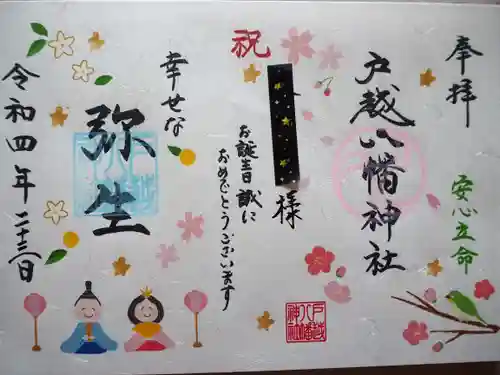 奉拝
安心立命
戸越八幡神社
祝
様
お誕生日誠に
おめでとうございます
幸せな
弥生
令和四年
二十三日
戸越八幡神社